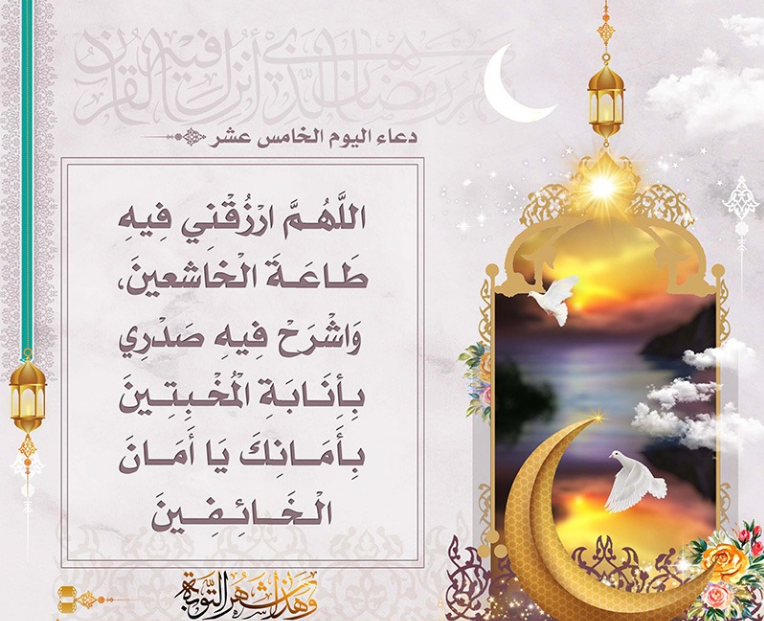 شهر رمضان الذي أنزل فيه القرآن
دعاء اليوم الخامس عشر
اللَّهُمَّ ارْزُقْنِي فِيهِ
طَاعَةَ الْخاشعينَ،
وَاشْرَحْ فِيهِ صَدْرِي
بِأنَابَةِ الْمُخْبِتِينَ
بِأَمَانِكَ يَا أَمَانَ
الْخَائِفِينَ
وَهَذَا شَهْرُ التَّوْبَةِ